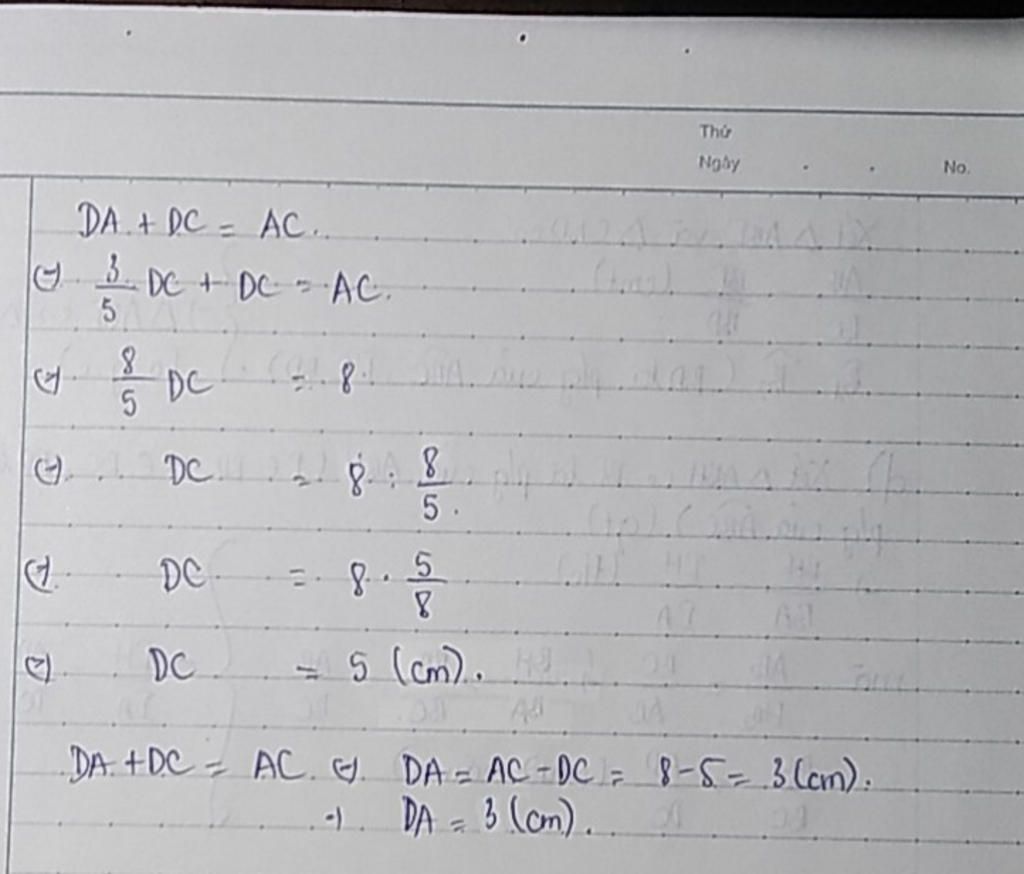 Thứ
Ngày . . No.
DA + DC = AC.
⇔ 3/5 DC + DC = AC.
⇔ 8/5 DC = 8
⇔ DC = 8 : 8/5.
⇔ DC = 8 . 5/8
⇔ DC = 5 (cm).
DA + DC = AC ⇔ DA = AC - DC = 8 - 5 = 3 (cm).
⇒ DA = 3 (cm).